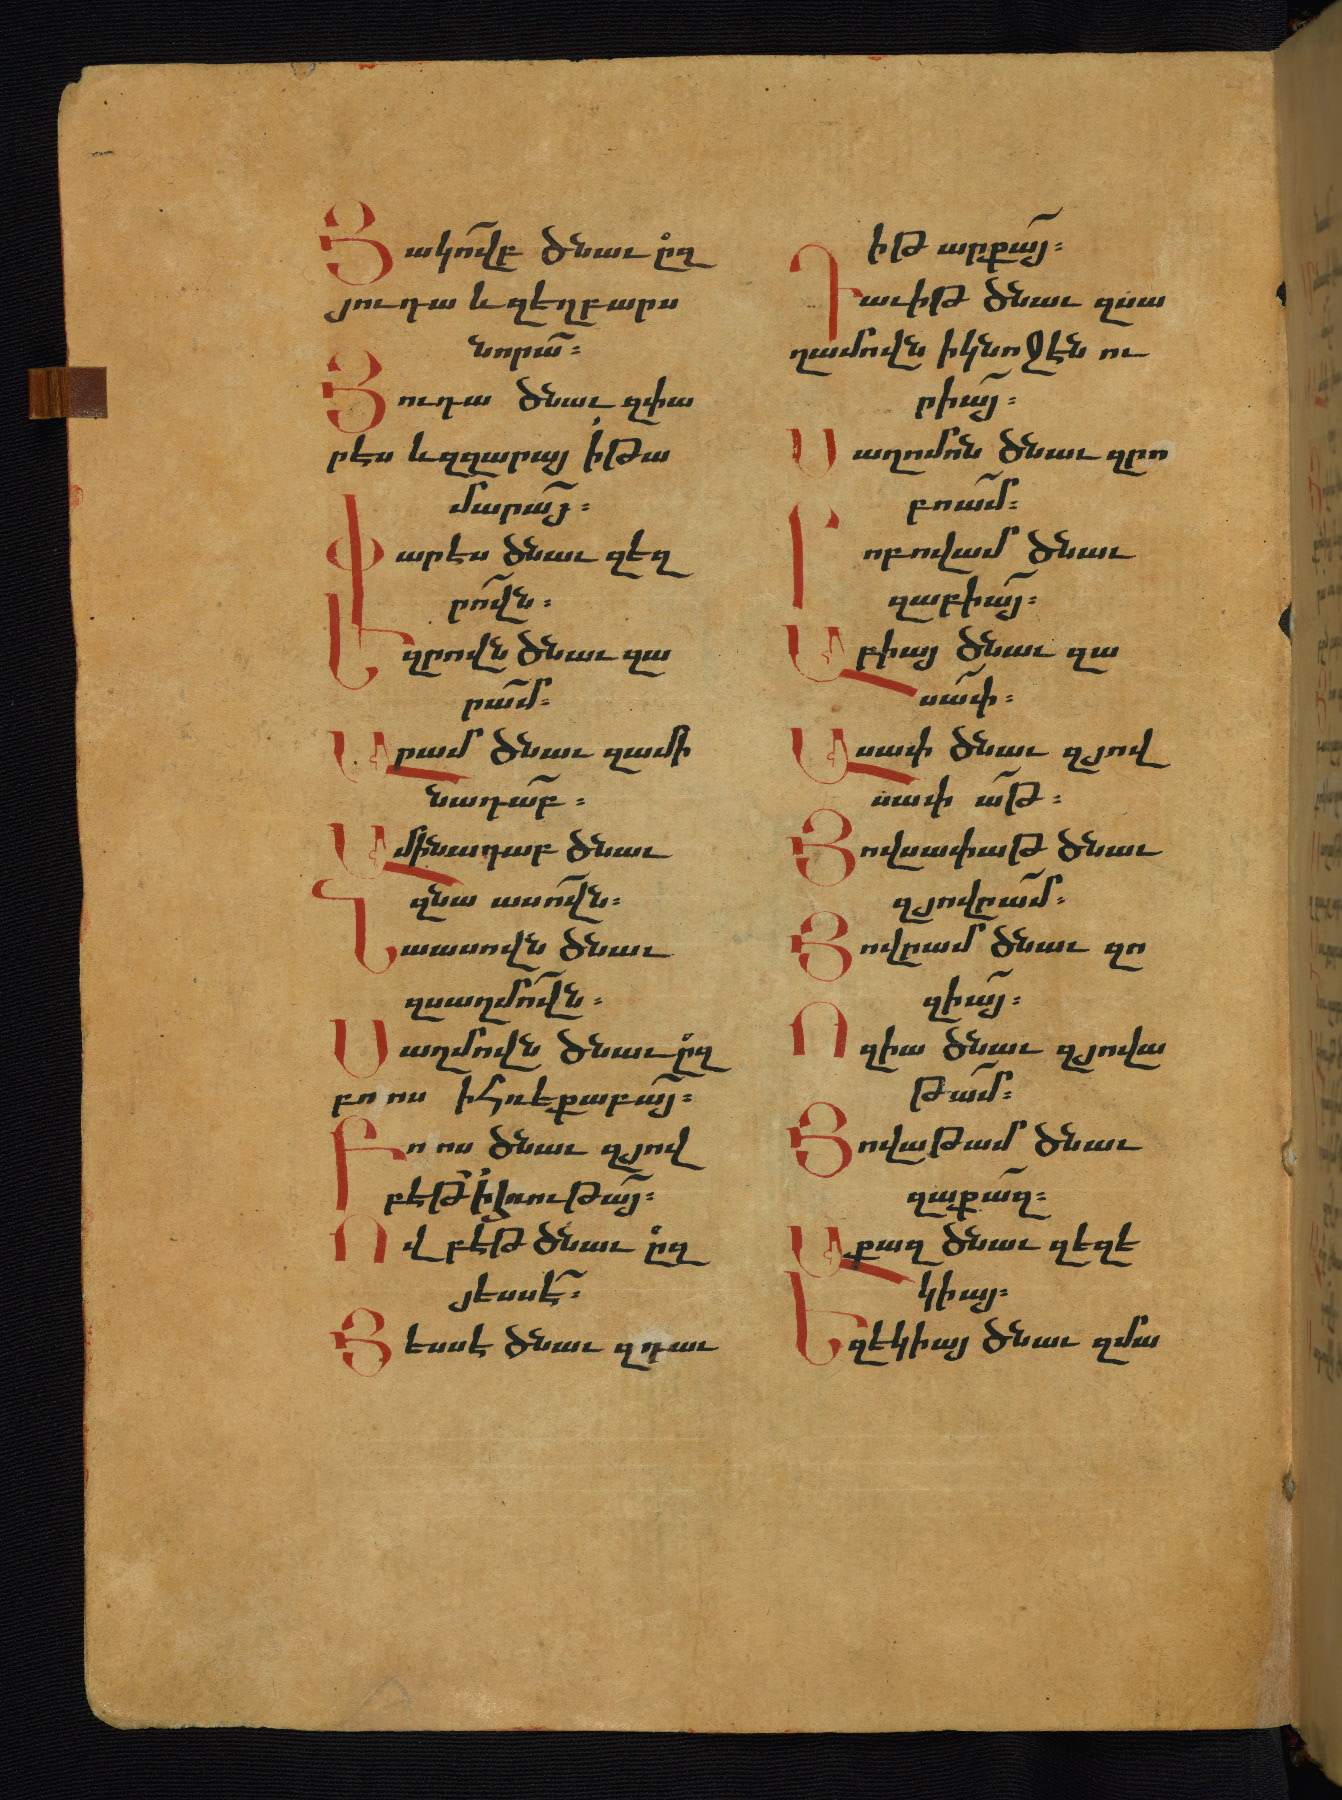 Յակովբ ծնաւ ըզ
յուդա և զեղբարս
նորա։
Յուդա ծնաւ զփա
րէս և զզարայ ի թա
մարայ։
Փարէս ծնաւ զեզ
րովն։
Եզրովն ծնաւ զա
րամ։
Արամ ծնաւ զամի
նադաբ։
Ամինադաբ ծնաւ
զնա ասովն։
Նաասովն ծնաւ
զսաղմովն։
Սաղմովն ծնաւ ըզ
բոոս ի հռեքաբայ։
Բոոս ծնաւ զյով
բէթ ի հռութայ։
Ովբէթ ծնաւ ըզ
յեսսէ։
Յեսսէ ծնաւ զդաւ
իթ արքայ։
Դաւիթ ծնաւ զսա
ղամովն ի կնոջէն ու
րիայ։
Սաղոմոն ծնաւ զրո
բոամ։
Րոբովամ ծնաւ
զաբիայ։
Աբիայ ծնաւ զա
սափ։
Ասափ ծնաւ զյով
սափ աթ։
Յովսափաթ ծնաւ
զյովրամ։
Յովրամ ծնաւ զո
զիայ։
Ոզիա ծնաւ զյովա
թամ։
Յովաթամ ծնաւ
զաքազ։
Աքազ ծնաւ զեզե
կիայ։
Եզեկիայ ծնաւ զմա